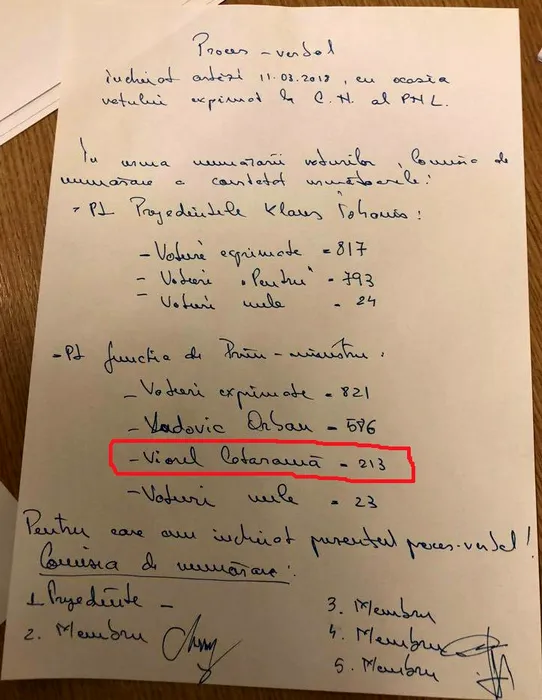 Proces-verbal
încheiat astăzi 11.03.2018, cu ocazia
votului exprimat la C.N. al PNL.
În urma numărării voturilor, Comisia de
numărare a constatat următoarele:
- Pt Președintele Klaus Iohannis:
- Voturi exprimate = 817
- Voturi "Pentru" - 793
- Voturi nule - 24
- Pt funcția de Prim-ministru:
- Voturi exprimate = 821
- Ludovic Orban - 586
- Viorel Cataramă - 213
- Voturi nule - 23
Pentru care am încheiat prezentul proces-verbal!
Comisia de numărare:
1. Președinte -
2. Membru
3. Membru
4. Membru
5. Membru